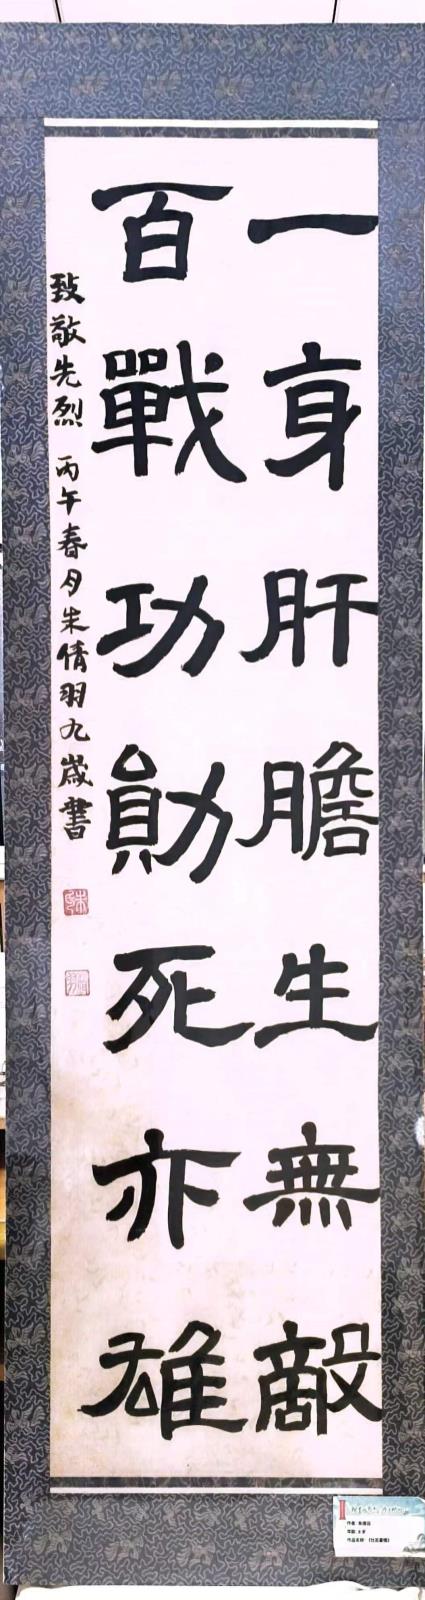 一身肝膽生無敵
百戰功勛死亦雄
致敬先烈 丙午春月朱倩羽九歲書
作者 朱倩羽
年龄 9 岁